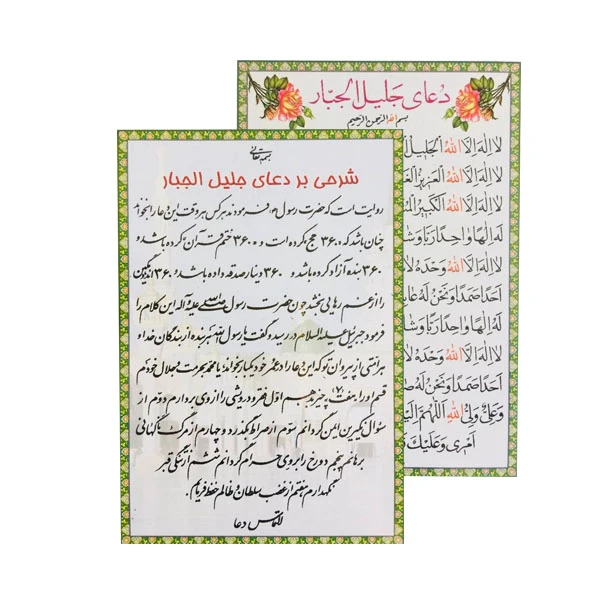 بسمه تعالی
شرحی بر دعای جلیل الجبار
روایت است که حضرت رسول (ص) فرمودند هر کس هر وقت این دعا را بخواند
چنان باشد که ۳۶۰۰ حج کرده است و ۳۶۰۰ ختم قرآن کرده باشد و
۳۶۰ بنده آزاد کرده باشد و ۳۶۰ دینار صدقه داده باشد و ۳۶۰ اندوهگین
را از غم رهایی بخشد چون حضرت رسول صلی الله علیه و آله این کلام را
فرمود جبرئیل علیه السلام در رسید و گفت یا رسول الله هر بنده از بندگان خدا و
هر امتی از پیروان تو که این دعا را در عمر خود یکبار بخواند یا محمد بحرمت و جلال خودم
قسم او را هفت (۷) چیز بدهم اول فقر و درویشی را از وی بردارم دوم از
سؤال نکیرین ایمن گردانم سوم از صراط بگذرد و چهارم از مرگ ناگهانی
برهانم پنجم دوزخ را بر وی حرام گردانم ششم از تنگی قبر
نگهدارم هفتم از غضب سلطان و ظالم حفظ فرمایم.
التماس دعا
دعای جلیل الجبار
بسم الله الرحمن الرحیم
لا اله الا الله الجلیل
لا اله الا الله العزیز
لا اله الا الله الکبیر
له الها واحدا ربا و
لا اله الا الله وحده لا
احدا صمدا و نحن له
له الها واحدا ربا و
لا اله الا الله وحده لا
احدا صمدا و نحن له
و علی ولی الله اللهم
امری و علیک